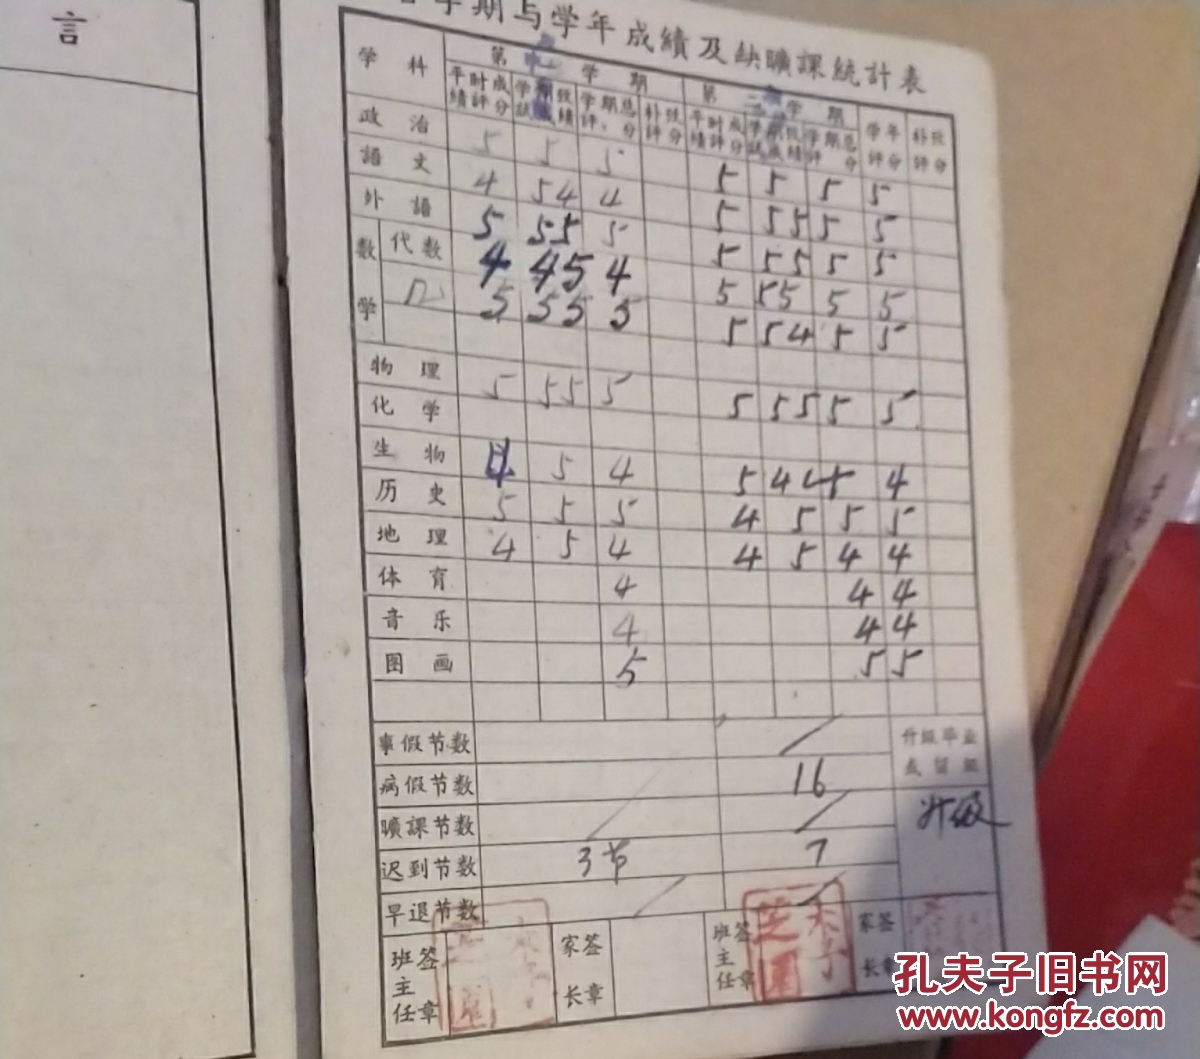 言
学期与学年成績及缺曠課統計表
学科 第一学期 第二学期 学年評分 补攷評分
平时成績評分 学期攷試成績 学期总評分 补攷評分 平时成績評分 学期攷試成績 学期总評分
政治 5 5 5 5 5 5 5
語文 4 5 4 4 5 5 5 5 5
外語 5 5 5 5 5 5 5 5 5
数学 代数 4 4 5 4 5 5 5 5 5
几 5 5 5 5 5 5 4 5 5
物理 5 5 5 5 5 5 5 5 5
化学
生物 4 5 4 5 4 5 4
历史 5 5 5 4 5 5 5
地理 4 5 4 4 5 4 4
体育 4 4 4
音乐 4 4 4
图画 5 5 5
事假节数
病假节数 16
曠課节数
迟到节数 3节 7
早退节数
升級毕业或留級
升级
班主任签章 家长签章 班主任签章 家长签章
孔夫子旧书网
www.kongfz.com